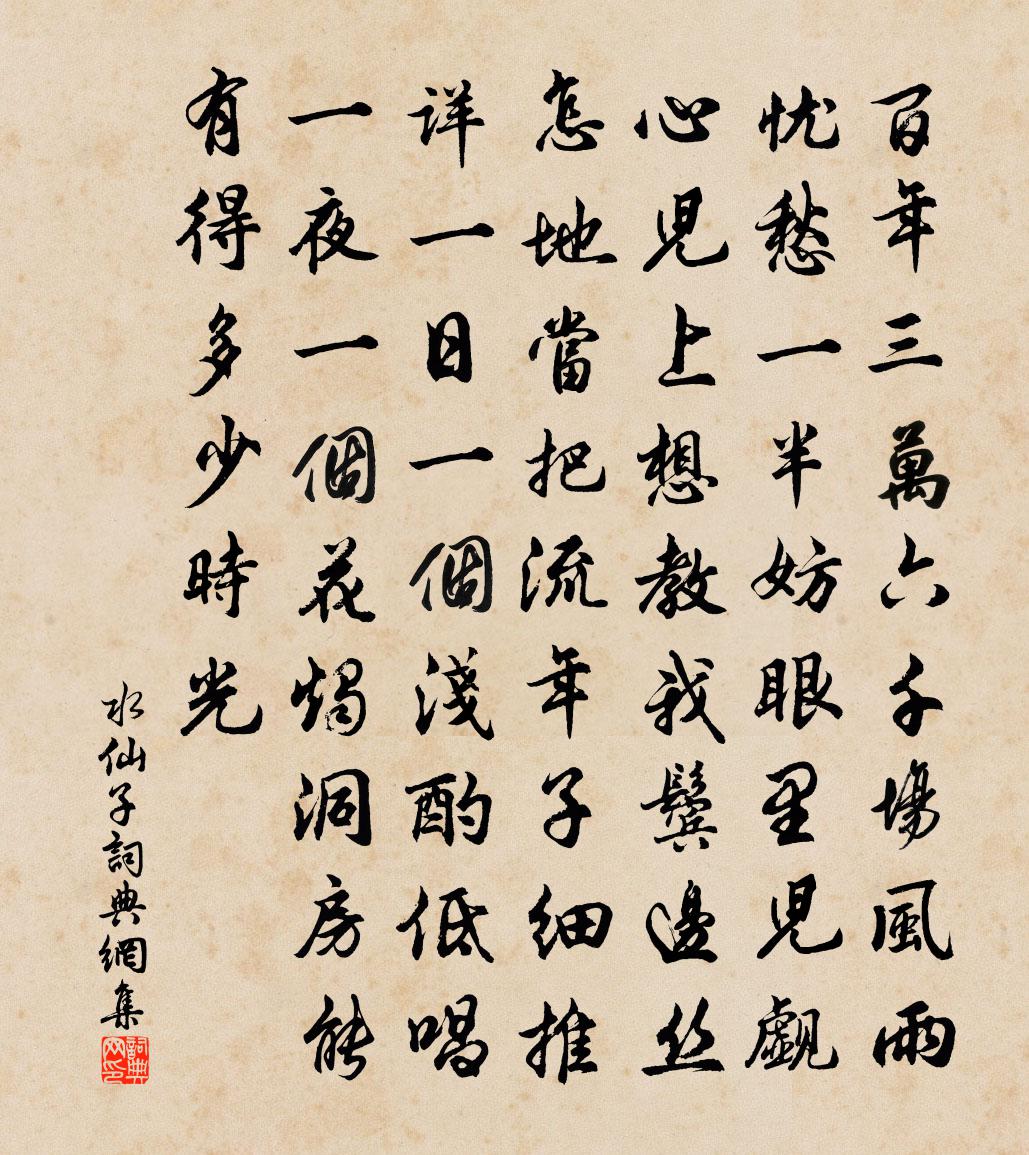 百年三萬六千場風雨
忧愁一半妨眼里児覷
心児上想教我鬓邊丝
怎地當把流年子細推
详一日一個淺酌低唱
一夜一個花燭洞房能
有得多少時光
水仙子詞典網集
詞典网印